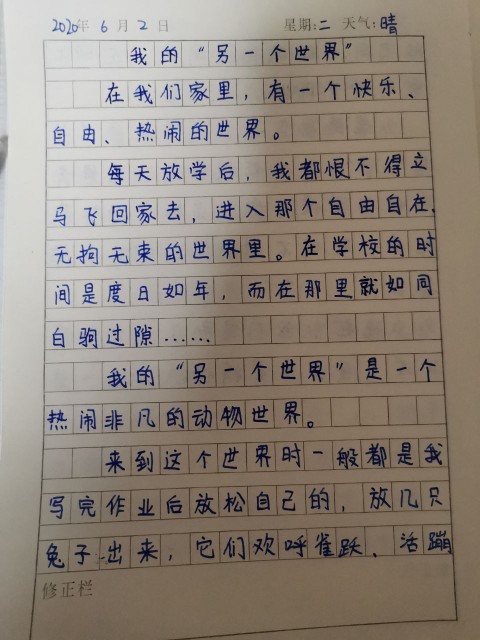 2020年 6月2日 星期:二 天气:晴
我的“另一个世界”
在我们家里,有一个快乐、
自由、热闹的世界。
每天放学后,我都恨不得立
马飞回家去,进入那个自由自在、
无拘无束的世界里。在学校的时
间是度日如年,而在那里就如同
白驹过隙……
我的“另一个世界”是一个
热闹非凡的动物世界。
来到这个世界时一般都是我
写完作业后放松自己的,放几只
兔子出来,它们欢呼雀跃、活蹦
修正栏